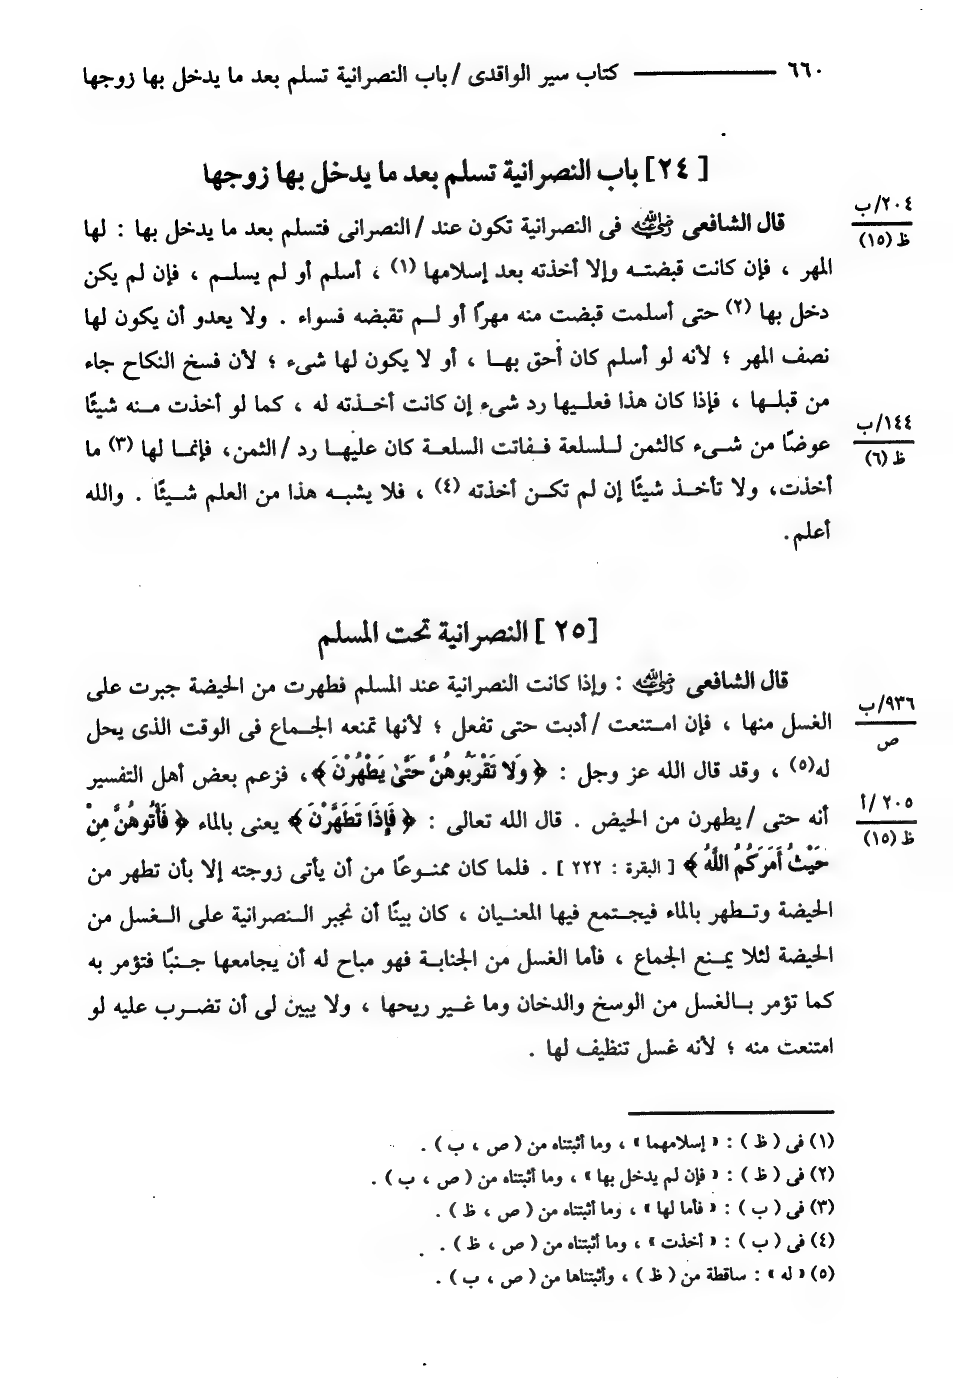 ٦٦٠ ــــــــــ كتاب سير الواقدى / باب النصرانية تسلم بعد ما يدخل بها زوجها
[ ٢٤] باب النصرانية تسلم بعد ما يدخل بها زوجها
٢٠٤/ب
ظ (١٥)
قال الشافعى رضي الله عنه فى النصرانية تكون عند / النصرانى فتسلم بعد ما يدخل بها : لها
المهر ، فإن كانت قبضته وإلا أخذته بعد إسلامها (١) ، أسلم أو لم يسلم ، فإن لم يكن
دخل بها (٢) حتى أسلمت قبضت منه مهرًا أو لم تقبضه فسواء . ولا يعدو أن يكون لها
نصف المهر ؛ لأنه لو أسلم كان أحق بها ، أو لا يكون لها شىء ؛ لأن فسخ النكاح جاء
من قبلها ، فإذا كان هذا فعليها رد شىء إن كانت أخذته له ، كما لو أخذت منه شيئًا
١٤٤/ب
ظ (٦)
عوضًا من شىء كالثمن للسلعة ففاتت السلعة كان عليها رد / الثمن، فإنما لها (٣) ما
أخذت، ولا تأخذ شيئًا إن لم تكن أخذته (٤) ، فلا يشبه هذا من العلم شيئًا . والله
أعلم.
[٢٥ ] النصرانية تحت المسلم
قال الشافعى رضي الله عنه : وإذا كانت النصرانية عند المسلم فطهرت من الحيضة جبرت على
٩٣٦/ب
ص
الغسل منها ، فإن امتنعت / أدبت حتى تفعل ؛ لأنها تمنعه الجماع فى الوقت الذى يحل
له(٥) ، وقد قال الله عز وجل : ﴿ وَلَا تَقْرَبُوهُنَّ حَتَّىٰ يَطْهُرْنَ ﴾، فزعم بعض أهل التفسير
٢٠٥ /أ
ظ (١٥)
أنه حتى / يطهرن من الحيض . قال الله تعالى : ﴿ فَإِذَا تَطَهَّرْنَ ﴾ يعنى بالماء ﴿ فَأْتُوهُنَّ مِنْ
حَيْثُ أَمَرَكُمُ اللَّهُ ﴾ [ البقرة : ٢٢٢ ] . فلما كان ممنوعًا من أن يأتى زوجته إلا بأن تطهر من
الحيضة وتطهر بالماء فيجتمع فيها المعنيان ، كان بينًا أن نجبر النصرانية على الغسل من
الحيضة لئلا يمنع الجماع ، فأما الغسل من الجنابة فهو مباح له أن يجامعها جنبًا فتؤمر به
كما تؤمر بالغسل من الوسخ والدخان وما غير ريحها ، ولا يبين لى أن تضرب عليه لو
امتنعت منه ؛ لأنه غسل تنظيف لها .
(١) فى ( ظ ) : « إسلامهما » ، وما أثبتناه من ( ص ، ب ) .
(٢) فى ( ظ ) : « فإن لم يدخل بها » ، وما أثبتناه من ( ص ، ب ) .
(٣) فى ( ب ) : « فأما لها » ، وما أثبتناه من ( ص ، ظ ) .
(٤) فى ( ب ) : « أخذت » ، وما أثبتناه من ( ص ، ظ ) .
(٥) « له » : ساقطة من ( ظ ) ، وأثبتناها من ( ص ، ب ) .